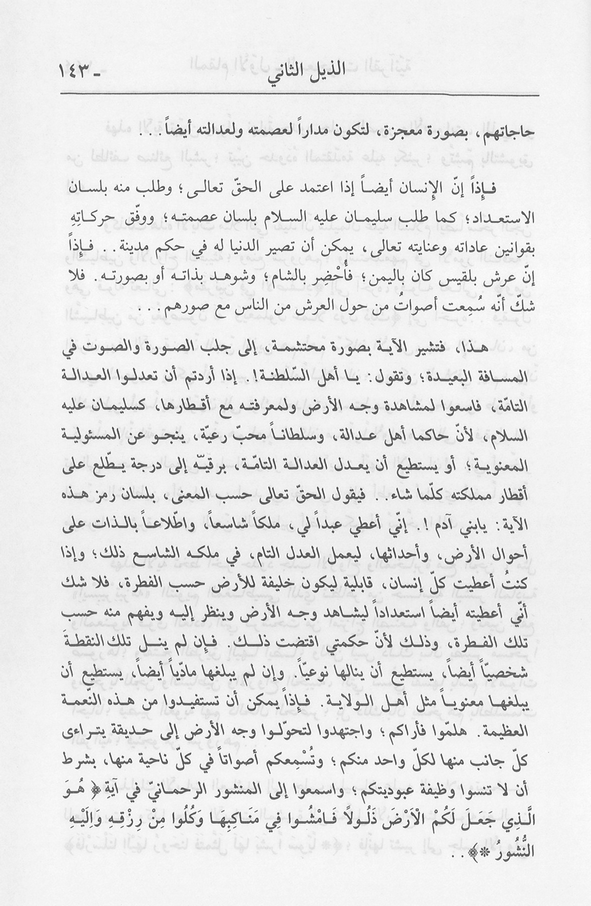 الذيل الثاني
- ١٤٣
حاجاتهم، بصورة معجزة، لتكون مداراً لعصمته ولعدالته أيضاً...
فإذاً إنّ الإنسان أيضاً إذا اعتمد على الحقّ تعالى؛ وطلب منه بلسان
الاستعداد؛ كما طلب سليمان عليه السلام بلسان عصمته؛ ووفّق حركاتِهِ
بقوانين عاداته وعنايته تعالى، يمكن أن تصير الدنيا له في حكم مدينة.. فإذاً
إنّ عرش بلقيس كان باليمن؛ فأُحْضِر بالشام؛ وشوهد بذاته أو بصورته. فلا
شكّ أنّه سُمِعت أصواتُ من حول العرش من الناس مع صورهم...
هذا، فتشير الآية بصورة محتشمة، إلى جلب الصورة والصوت في
المسافة البعيدة؛ وتقول: يا أهل السّلطنة!. إذا أردتم أن تعدلوا العدالة
التامّة، فاسعوا لمشاهدة وجه الأرض ولمعرفته مع أقطارها، كسليمان عليه
السلام، لأنّ حاكما أهل عدالة، وسلطاناً محبّ رعيّة، ينجو عن المسئولية
المعنوية؛ أو يستطيع أن يعدل العدالة التامّة، برقيّه إلى درجة يطّلع على
أقطار مملكته كلّما شاء.. فيقول الحقّ تعالى حسب المعنى، بلسان رمز هذه
الآية: يابني آدم !. إنّي أعطي عبداً لي، ملكاً شاسعاً، واطّلاعاً بالذات على
أحوال الأرض، وأحداثها، ليعمل العدل التام، في ملكه الشاسع ذلك؛ وإذا
كنتُ أعطيت كلّ إنسان، قابلية ليكون خليفة للأرض حسب الفطرة، فلا شك
أنّي أعطيته أيضاً استعداداً ليشاهد وجه الأرض وينظر إليه ويفهم منه حسب
تلك الفطرة، وذلك لأنّ حكمتي اقتضت ذلك. فإن لم ينل تلك النقطةَ
شخصيّاً أيضاً، يستطيع أن ينالها نوعيّاً. وإن لم يبلغها مادّياً أيضاً، يستطيع أن
يبلغها معنوياً مثل أهل الولاية. فإذاً يمكن أن تستفيدوا من هذه النّعمة
العظيمة. هلمّوا فأراكم؛ واجتهدوا لتحوّلوا وجه الأرض إلى حديقة يتراءى
كلّ جانب منها لكلّ واحد منكم؛ وتُسْمِعكم أصواتاً في كلّ ناحية منها، بشرط
أن لا تنسوا وظيفة عبوديتكم؛ واسمعوا إلى المنشور الرحمانيّ في آية ﴿ هُوَ
الَّذِي جَعَلَ لَكُمْ الْأَرْضَ ذَلُولًا فَامْشُوا فِي مَنَاكِبِهَا وَكُلُوا مِنْ رِزْقِهِ وَإِلَيْهِ
النُّشُورُ * ﴾..